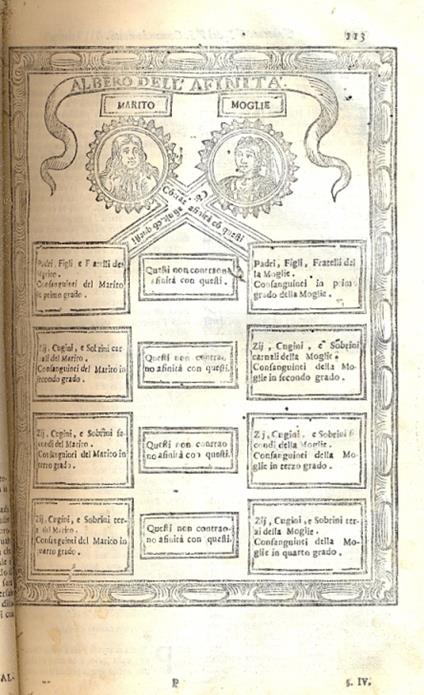 113
ALBERO DELL' AFINITÀ.
MARITO
MOGLIE
afinità cō questi
Padri, Figli, e Fratelli del
Marito.
Consanguinei del Marito
in primo grado.
Questi non contraono
afinità con questi.
Padri, Figli, Fratelli del
la Moglie.
Consanguinei in primo
grado della Moglie.
Zij, Cugini, e Sobrini car
nali del Marito.
Consanguinei del Marito in
secondo grado.
Questi non contrao,
no afinità con questi.
Zij, Cugini, e Sobrini
carnali della Moglie.
Consanguinei della Mo
glie in secondo grado.
Zij, Cugini, e Sobrini se
condi del Marito.
Consanguinei del Marito in
terzo grado.
Questi non contrao
no afinità con questi.
Zij, Cugini, e Sobrini se
condi della Moglie.
Consanguinei della Mo
glie in terzo grado.
Zij, Cugini, e Sobrini ter
zi del Marito.
Consanguinei del Marito in
quarto grado.
Questi non contrao-
no afinità con questi.
Zij, Cugini, e Sobrini ter
zi della Moglie.
Consanguinei della Mo
glie in quarto grado.
AL-
P
§. IV.